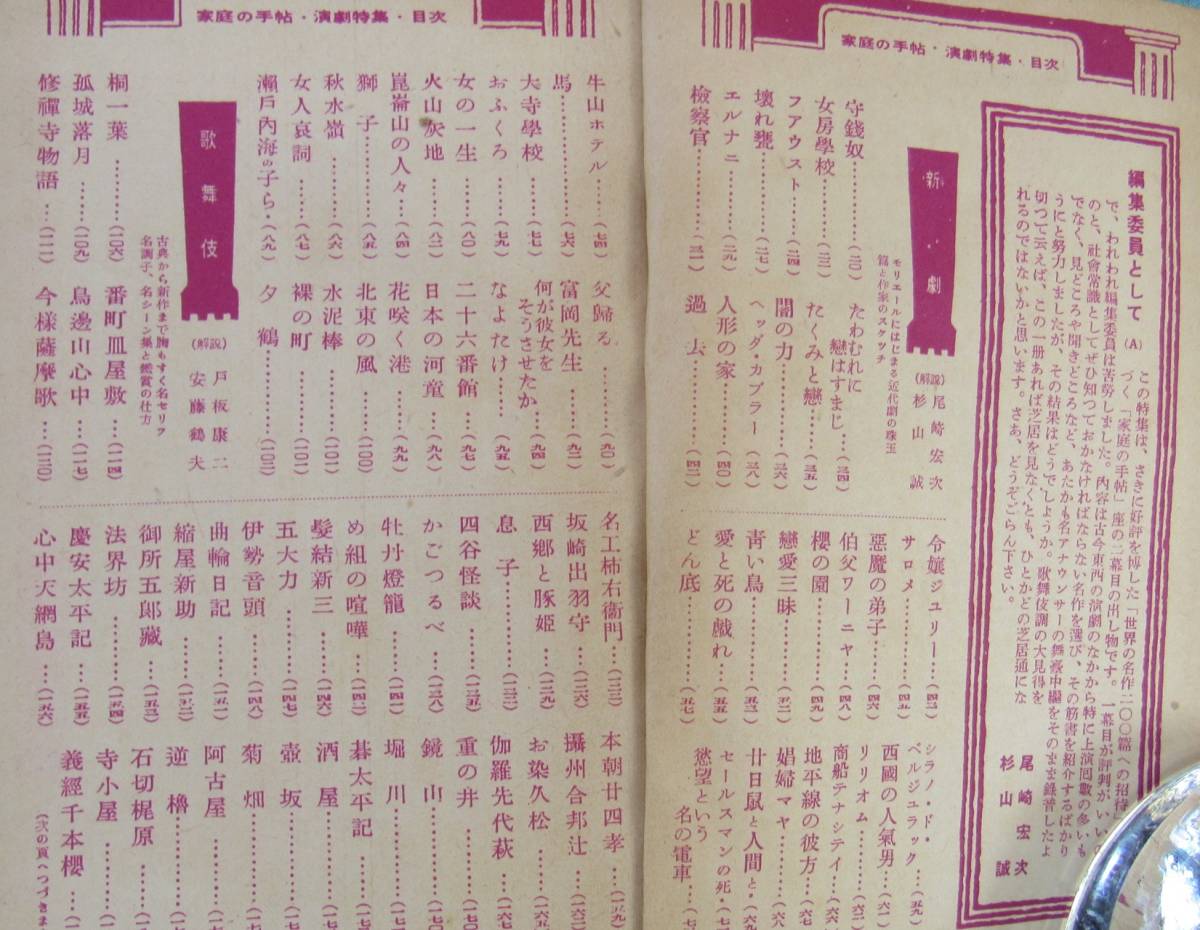 家庭の手帖・演劇特集・目次
編集委員として (A)
この特集は、さきに好評を博した「世界の名作二〇〇篇への招待」
づく「家庭の手帖」座の二幕目の出し物です。一幕目が評判がいいの
で、われわれ編集委員は苦勞しました。内容は古今東西の演劇のなかから特に上演回數の多いも
のと、社會常識としてぜひ知つておかなければならない名作を選び、その筋書を紹介するばかり
でなく、見どころや聞きどころなど、あたかも名アナウンサーの舞臺中繼をそのまま錄音したよ
うにと努力しましたが、その結果はどうでしようか。歌舞伎調の大見得を
切つて云えば、この一册あれば芝居を見なくとも、ひとかどの芝居通にな
れるのではないかと思います。さあ、どうぞごらん下さい。
尾崎宏次
杉山誠
新劇
(解説) 尾崎宏次
杉山誠
モリエールにはじまる近代劇の珠玉
篇と作家のスケッチ
守錢奴
女房學校
フアウスト
壞れ甕
エルナニ
檢察官
たわむれに
戀はすまじ
たくみと戀
闇の力
ヘッダ・カブラー
人形の家
過去
令孃ジュリー
サロメ
惡魔の弟子
伯父ワーニャ
櫻の園
戀愛三昧
靑い鳥
愛と死の戯れ
どん底
シラノ・ド・
ベルジュラック
西國の人氣男
リリオム
商船テナシテイ
地平線の彼方
娼婦マヤ
廿日鼠と人間と
セールスマンの死
慾望という
名の電車
家庭の手帖・演劇特集・目次
牛山ホテル (七四)
馬 (七六)
大寺學校 (七七)
おふくろ (七九)
女の一生 (八〇)
火山灰地 (八二)
崑崙山の人々 (八四)
獅子 (八五)
秋水嶺 (八六)
女人哀詞 (八七)
瀬戸內海の子ら (八九)
父歸る (九〇)
富岡先生 (九二)
何が彼女を
そうさせたか (九四)
なよたけ (九五)
二十六番館 (九七)
日本の河童 (九八)
花咲く港 (九九)
北東の風 (一〇〇)
水泥棒 (一〇一)
裸の町 (一〇一)
夕鶴 (一〇二)
歌舞伎
(解説) 戸板康二
安藤鶴夫
古典から新作まで胸もすく名セリフ
名調子、名シーン集と鑑賞の仕方
桐一葉 (一〇六)
孤城落月 (一〇九)
修禪寺物語
番町皿屋敷 (一一四)
鳥邊山心中 (一一七)
今樣薩摩歌 (一二〇)
名工柿右衞門
坂崎出羽守 (一二六)
西郷と豚姬 (一二九)
息子
四谷怪談 (一三五)
かごつるべ
牡丹燈籠 (一四一)
め組の喧嘩
髮結新三
五大力 (一四七)
伊勢音頭 (一四八)
曲輪日記
縮屋新助
御所五郎藏
法界坊 (一五四)
慶安太平記 (一五五)
心中天網島 (一五六)
本朝廿四孝 (一五九)
攝州合邦辻
お染久松
伽羅先代萩
重の井
鏡山
堀川
碁太平記
酒屋
壺坂
菊畑
阿古屋
逆櫓
石切梶原
寺小屋
義經千本櫻
(次の頁へつづきま